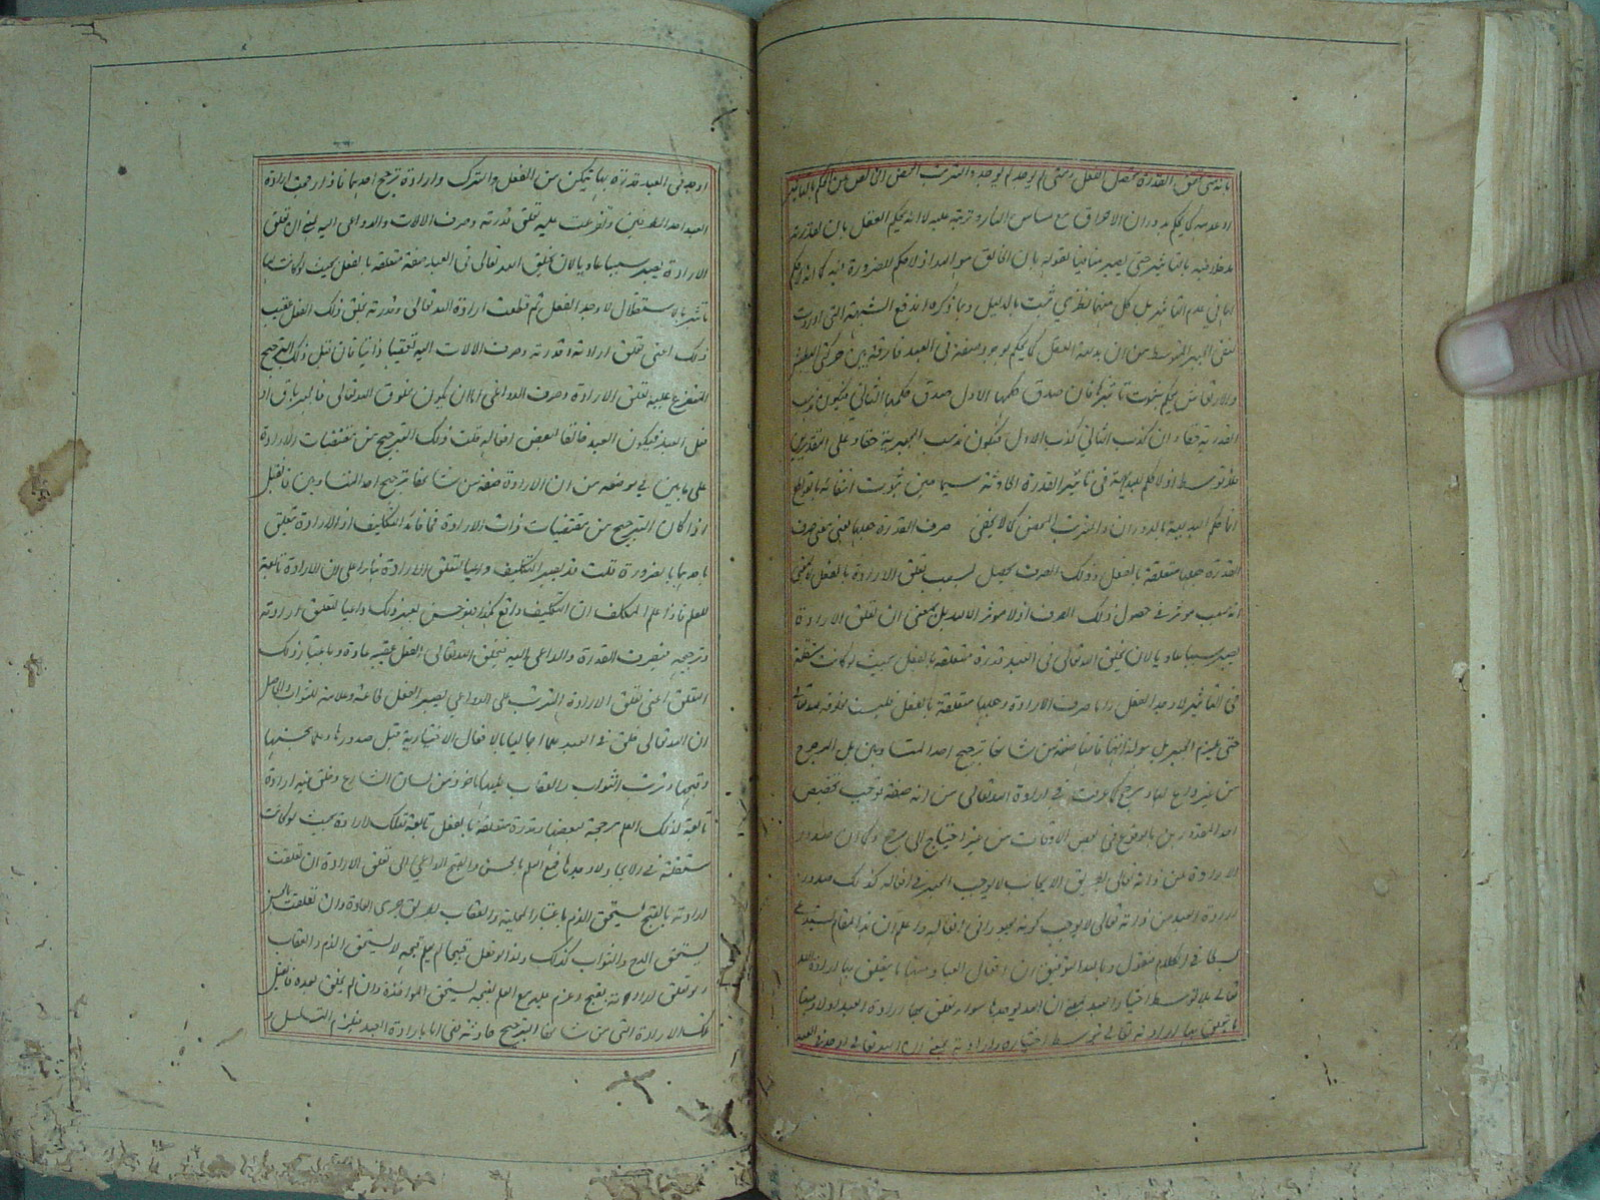 بانه متى تحقق القدرة يحصل الفعل ومتى لم يوجد لم يوجد والترتب المحض الخالص من الحكم بالتأثير
او عدمه كما يحكم بدوران الاحراق مع مساس النار وترتبه عليه لا انه يحكم العقل بان لقدرته
مدخلا فيه بالتأثير حتى يصير منافيا لقوله بان الخالق هو الله اذ لا حكم للضرورة فيه كما انه لا حكم
لها في عدم التأثير بل كل منهما نظري يثبت بالدليل وبما ذكره اندفع الشبهة التي اوردت
لنفي الجبر المتوسط من ان بديهة العقل كما يحكم بوجود صفة في العبد فارقة بين حركتي البطش
والارتعاش يحكم بثبوت تأثيرها فان صدق حكمها الاول صدق حكمها الثاني فيكون مذهب
القدرية حقا وان كذب الثاني كذب الاول فيكون مذهب الجبرية حقا وعلى التقديرين
فلا توسط اذ لا حكم للبديهة في تأثير القدرة الحادثة سيما حين ثبوت انتفائه بالقواطع
انما حكم البديهية بالدوران والترتب المحض كما لا يخفى صرف القدرة جعلها يعني معنى صرف
القدرة جعلها متعلقة بالفعل وذلك الصرف يحصل بسبب تعلق الارادة بالفعل لا بمعنى
انه سبب مؤثر في حصول ذلك الصرف اذ لا مؤثر الا الله بل بمعنى ان تعلق الارادة
يصير سببا عاديا لان يخلق الله تعالى في العبد قدرة متعلقة بالفعل بحيث لو كانت مستقلة
في التأثير لاوجد الفعل واما صرف الارادة وجعلها متعلقة بالفعل فليست مخلوقة لله تعالى
حتى يلزم الجبر بل هو لذاتها فانها صفة من شانها ترجيح احد المتساويين بل المرجوح
من غير داع لها ومرجح كما عرفت في ارادة الله تعالى من انه صفة توجب تخصيص
احد المقدورين بالوقوع في بعض الاوقات من غير احتياج الى مرجح وكما ان صدور
الارادة عن ذاته تعالى بطريق الايجاب لا يوجب الجبر في افعاله كذلك صدور
ارادة العبد من ذاته تعالى لا يوجب كونه مجبورا في افعاله واعلم ان هذا المقام يستدعي
بسطا في الكلام فنقول وبالله التوفيق ان افعال العباد منها ما يتعلق بها ارادة الله
تعالى بلا توسط اختيار العبد بمعنى ان الله يوجدها سواء تعلق بها ارادة العبد او لا ومنها
ما يتعلق بها ارادته تعالى بتوسط اختياره وارادته بمعنى ان الله تعالى اوجد في العبد
اوجد في العبد قدرة بها يتمكن من الفعل والترك وارادة ترجح احدهما فاذا رجحت ارادة
العبد احد الطرفين وتفرعت عليه تعلق قدرته وصرف الالات والدواعي اليه يعني ان تعلق
الارادة يصير سببا عاديا لان يخلق الله تعالى في العبد صفة متعلقة بالفعل بحيث لو كانت لها
تأثير بالاستقلال لاوجد الفعل ثم تعلقت ارادة الله تعالى وقدرته بخلق ذلك الفعل عقيب
ذلك اعني تعلق ارادته وقدرته وصرف الالات اليه تعقيبا ذاتيا فان قيل ذلك الترجيح
المتفرع عليه تعلق الارادة وصرف الدواعي اما ان يكون مخلوق الله تعالى فالجبر باق او
فعل العبد فيكون العبد خالقا لبعض افعاله قلت ذلك الترجيح من مقتضيات الارادة
على ما بين في موضعه من ان الارادة صفة من شانها ترجيح احد المتساويين فان قيل
اذا كان الترجيح من مقتضيات ذات الارادة فما فائدة التكليف اذ الارادة تتعلق
باحدهما بالضرورة قلت قد يصير التكليف داعيا لتعلق الارادة بناء على ان الارادة تابعة
للعلم فاذا علم المكلف ان التكليف واقع بهذا فهو حسن يصير ذلك داعيا لتعلق ارادته
وترجيحه فيصرف القدرة والدواعي اليه فيخلق الله تعالى الفعل عقيبه عادة وباعتبار ذلك
التعلق اعني تعلق الارادة المترتب على الدواعي يصير الفعل طاعة وعلامة للثواب والحاصل
ان الله تعالى خلق في العبد علما اجماليا بالافعال الاختيارية قبل صدورها وعلما بحسنها
وقبحها وترتب الثواب والعقاب عليها ماخوذ من لسان الشارع وخلق فيه ارادة
تابعة لذلك العلم مرجحة لبعضها وقدرة متعلقة بالفعل تابعة لتلك الارادة بحيث لو كانت
مستقلة في الايجاد لاوجدها فمع العلم بالحسن والقبح الداعي الى تعلق الارادة ان تعلقت
ارادته بالقبح يستحق الذم باعتبار المحلية والعقاب بطريق جري العادة وان تعلقت بالحسن
يستحق المدح والثواب كذلك ولذا لو فعل قبيحا لم يعلم قبحه لا يستحق الذم والعقاب
ولو تعلق ارادته بقبح وعزم عليه مع العلم بقبحه يستحق المواخذة وان لم يخلق بعده فان قيل
تلك الارادة التي من شانها الترجيح حادثة فهي اما بارادة العبد فيلزم التسلسل